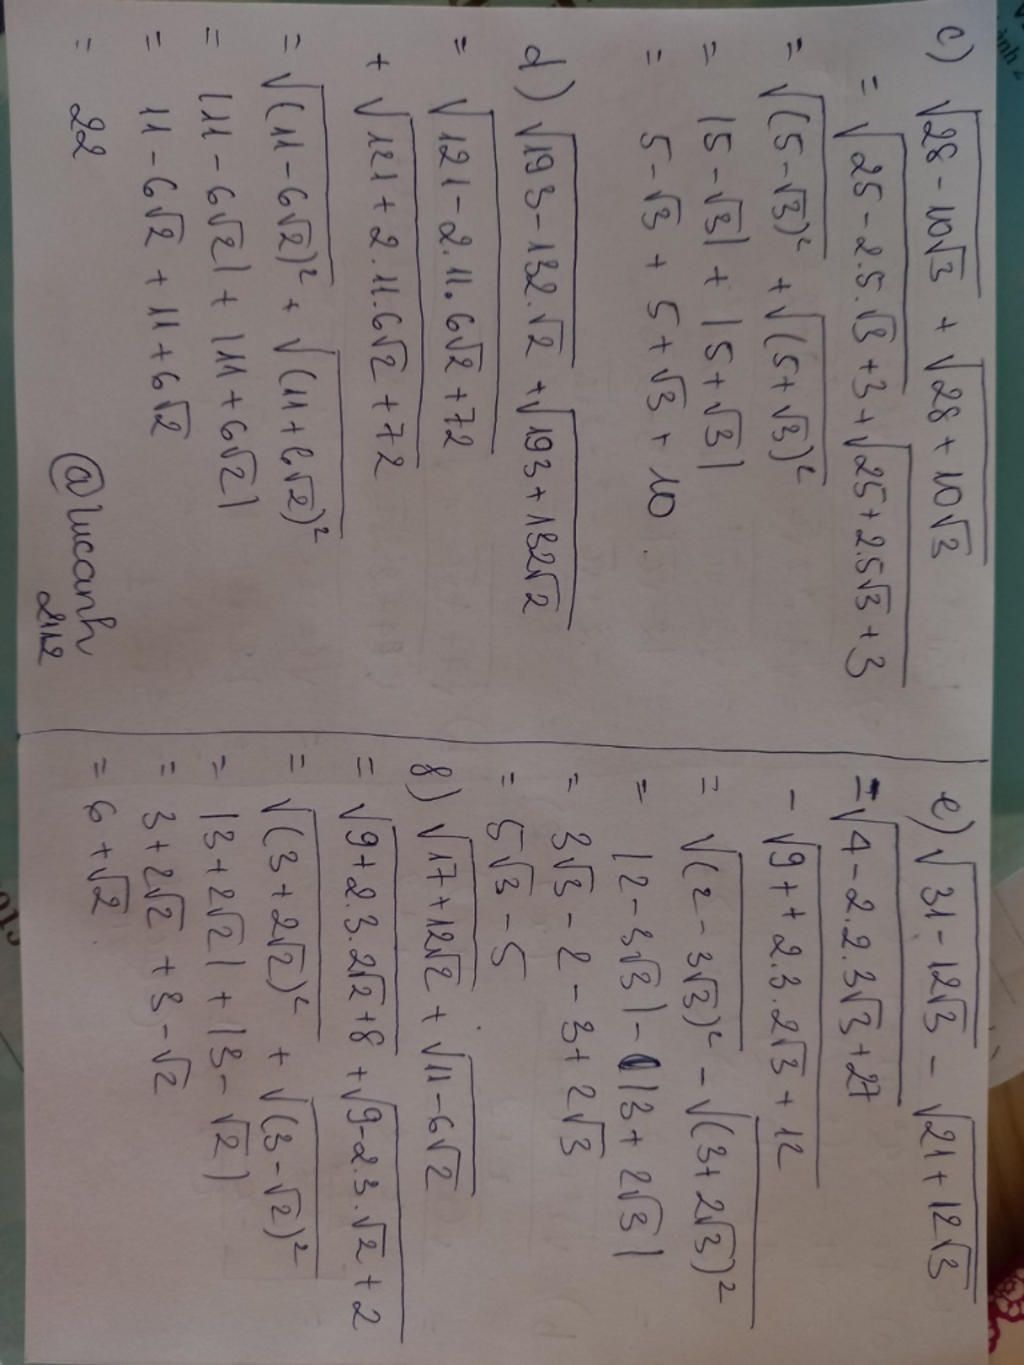 c) √28 - 10√3 + √28 + 10√3
= √25 - 2.5.√3 + 3 + √25 + 2.5√3 + 3
= √(5 - √3)² + √(5 + √3)²
= |5 - √3| + |5 + √3|
= 5 - √3 + 5 + √3 + 10
d) √193 - 132.√2 + √193 + 132√2
= √121 - 2.11.6√2 + 72
+ √121 + 2.11.6√2 + 72
= √(11 - 6√2)² + √(11 + 6√2)²
= |11 - 6√2| + |11 + 6√2|
= 11 - 6√2 + 11 + 6√2
= 22
@lucanh
212
e) √31 - 12√3 - √21 + 12√3
= √4 - 2.2.3√3 + 27
- √9 + + 2.3.2√3 + 12
= √(2 - 3√3)² - √(3 + 2√3)²
= |2 - 3√3| - |3 + 2√3|
= 3√3 - 2 - 3 + 2√3
= 5√3 - 5
8) √17 + 12√2 + √11 - 6√2
= √9 + 2.3.2√2 + 8 + √9 - 2.3.√2 + 2
= √(3 + 2√2)² + √(3 - √2)²
= |3 + 2√2| + |3 - √2)
= 3 + 2√2 + 3 - √2
= 6 + √2